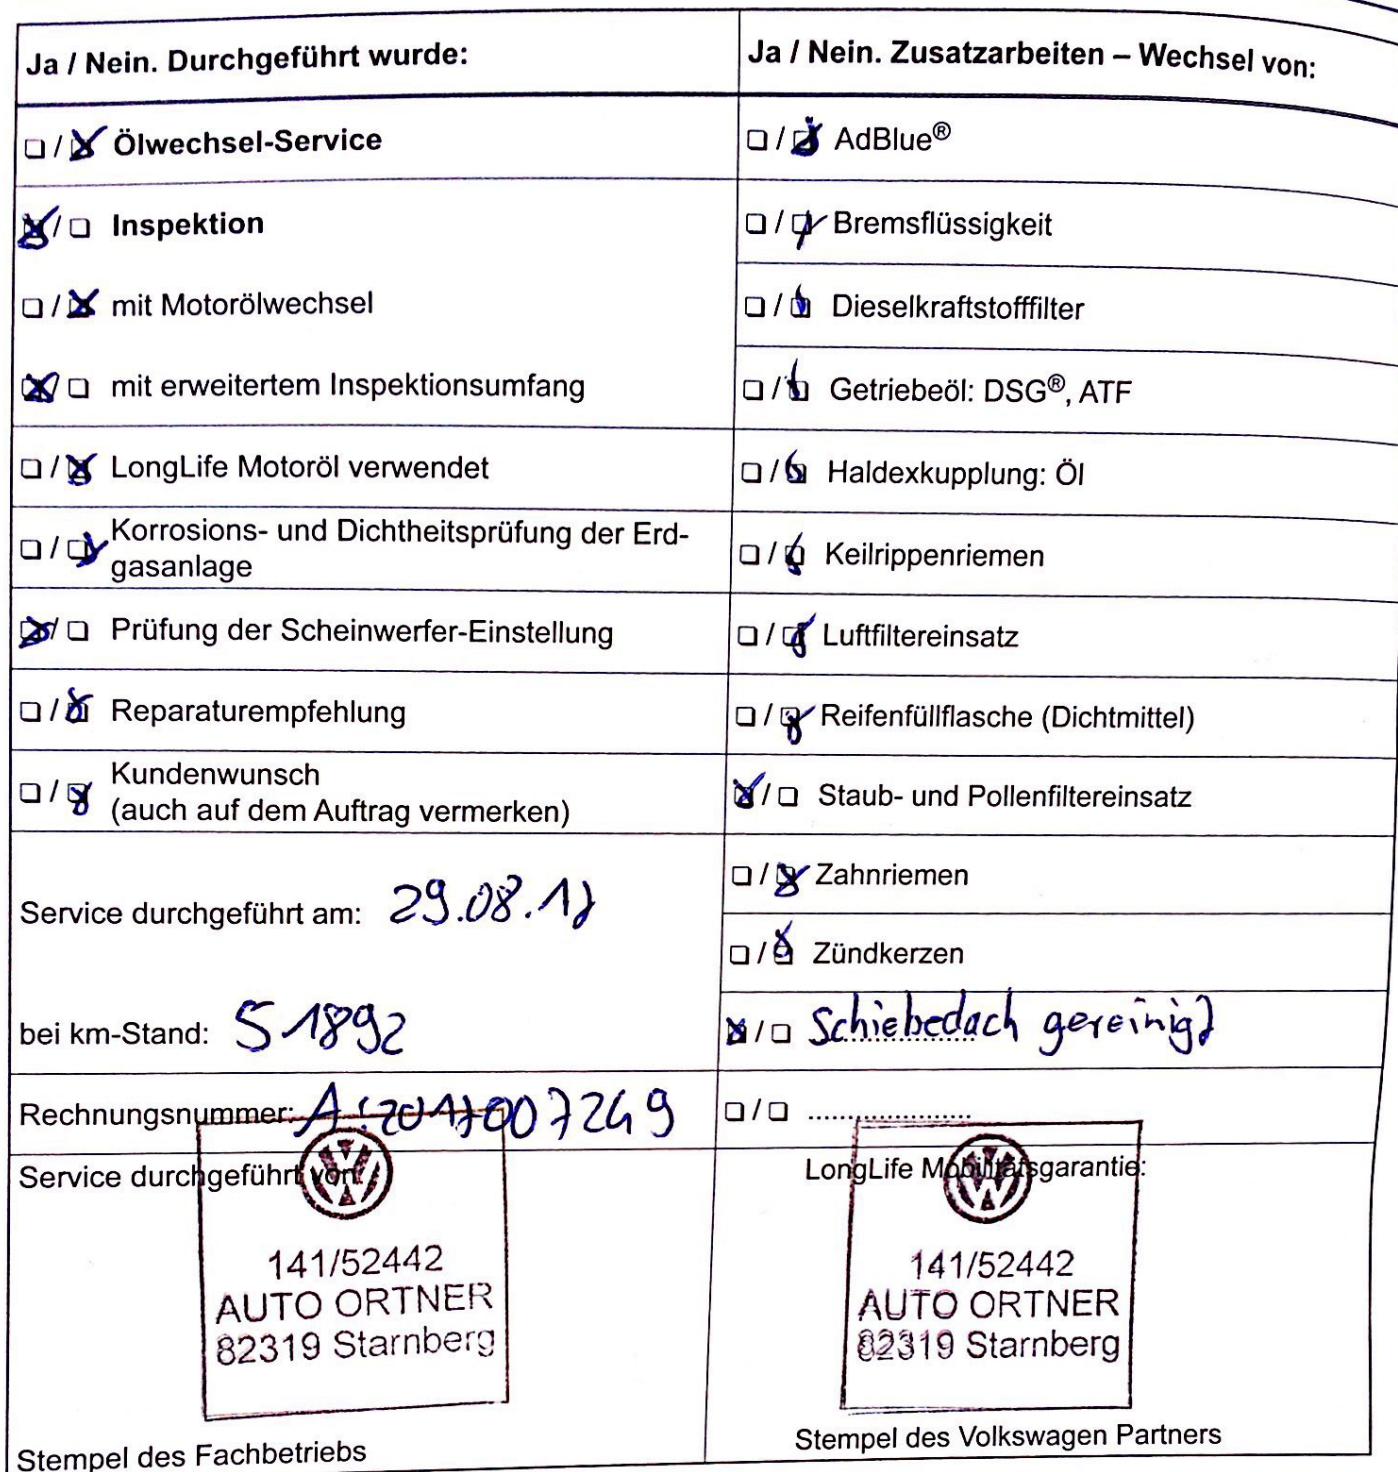 Ja / Nein. Durchgeführt wurde:
☐ / ☒ Ölwechsel-Service
☒ / ☐ Inspektion
☐ / ☒ mit Motorölwechsel
☒ / ☐ mit erweitertem Inspektionsumfang
☐ / ☒ LongLife Motoröl verwendet
☐ / ☒ Korrosions- und Dichtheitsprüfung der Erd-
gasanlage
☒ / ☐ Prüfung der Scheinwerfer-Einstellung
☐ / ☒ Reparaturempfehlung
☐ / ☒ Kundenwunsch
(auch auf dem Auftrag vermerken)
Service durchgeführt am: 29.08.17
bei km-Stand: 51892
Rechnungsnummer: A:2017007249
Service durchgeführt von:
141/52442
AUTO ORTNER
82319 Starnberg
Stempel des Fachbetriebs
Ja / Nein. Zusatzarbeiten – Wechsel von:
☐ / ☒ AdBlue®
☐ / ☒ Bremsflüssigkeit
☐ / ☒ Dieselkraftstofffilter
☐ / ☒ Getriebeöl: DSG®, ATF
☐ / ☒ Haldexkupplung: Öl
☐ / ☒ Keilrippenriemen
☐ / ☒ Luftfiltereinsatz
☐ / ☒ Reifenfüllflasche (Dichtmittel)
☒ / ☐ Staub- und Pollenfiltereinsatz
☐ / ☒ Zahnriemen
☐ / ☒ Zündkerzen
☒ / ☐ Schiebedach gereinigt
☐ / ☐ ....................
LongLife Mobilitätsgarantie:
141/52442
AUTO ORTNER
82319 Starnberg
Stempel des Volkswagen Partners